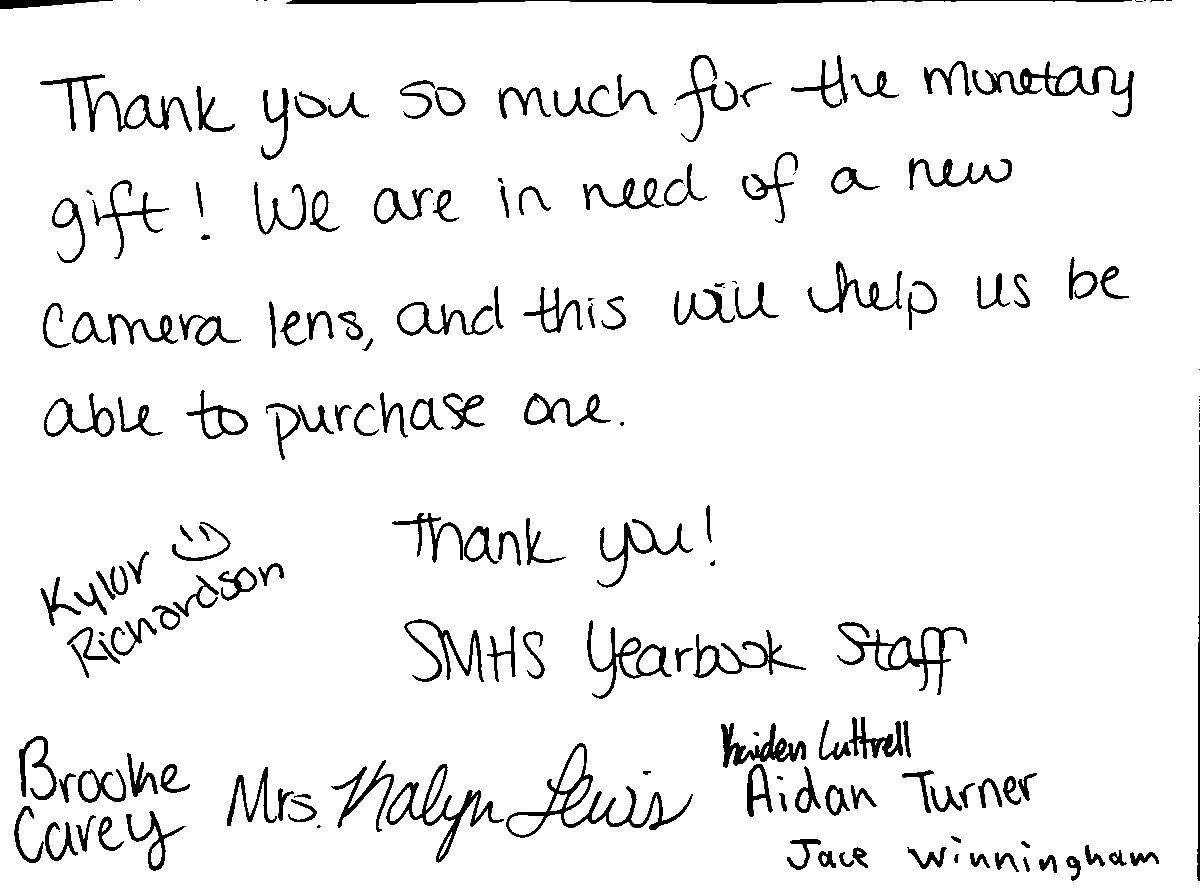 Thank you so much for the monetary
gift! We are in need of a new
camera lens, and this will help us be
able to purchase one.
Thank you!
SMHS Yearbook Staff
Kylor
Richardson
Brooke
Carey
Mrs. Kalyn Lewis
Kaiden Luttrell
Aidan Turner
Jace Winningham